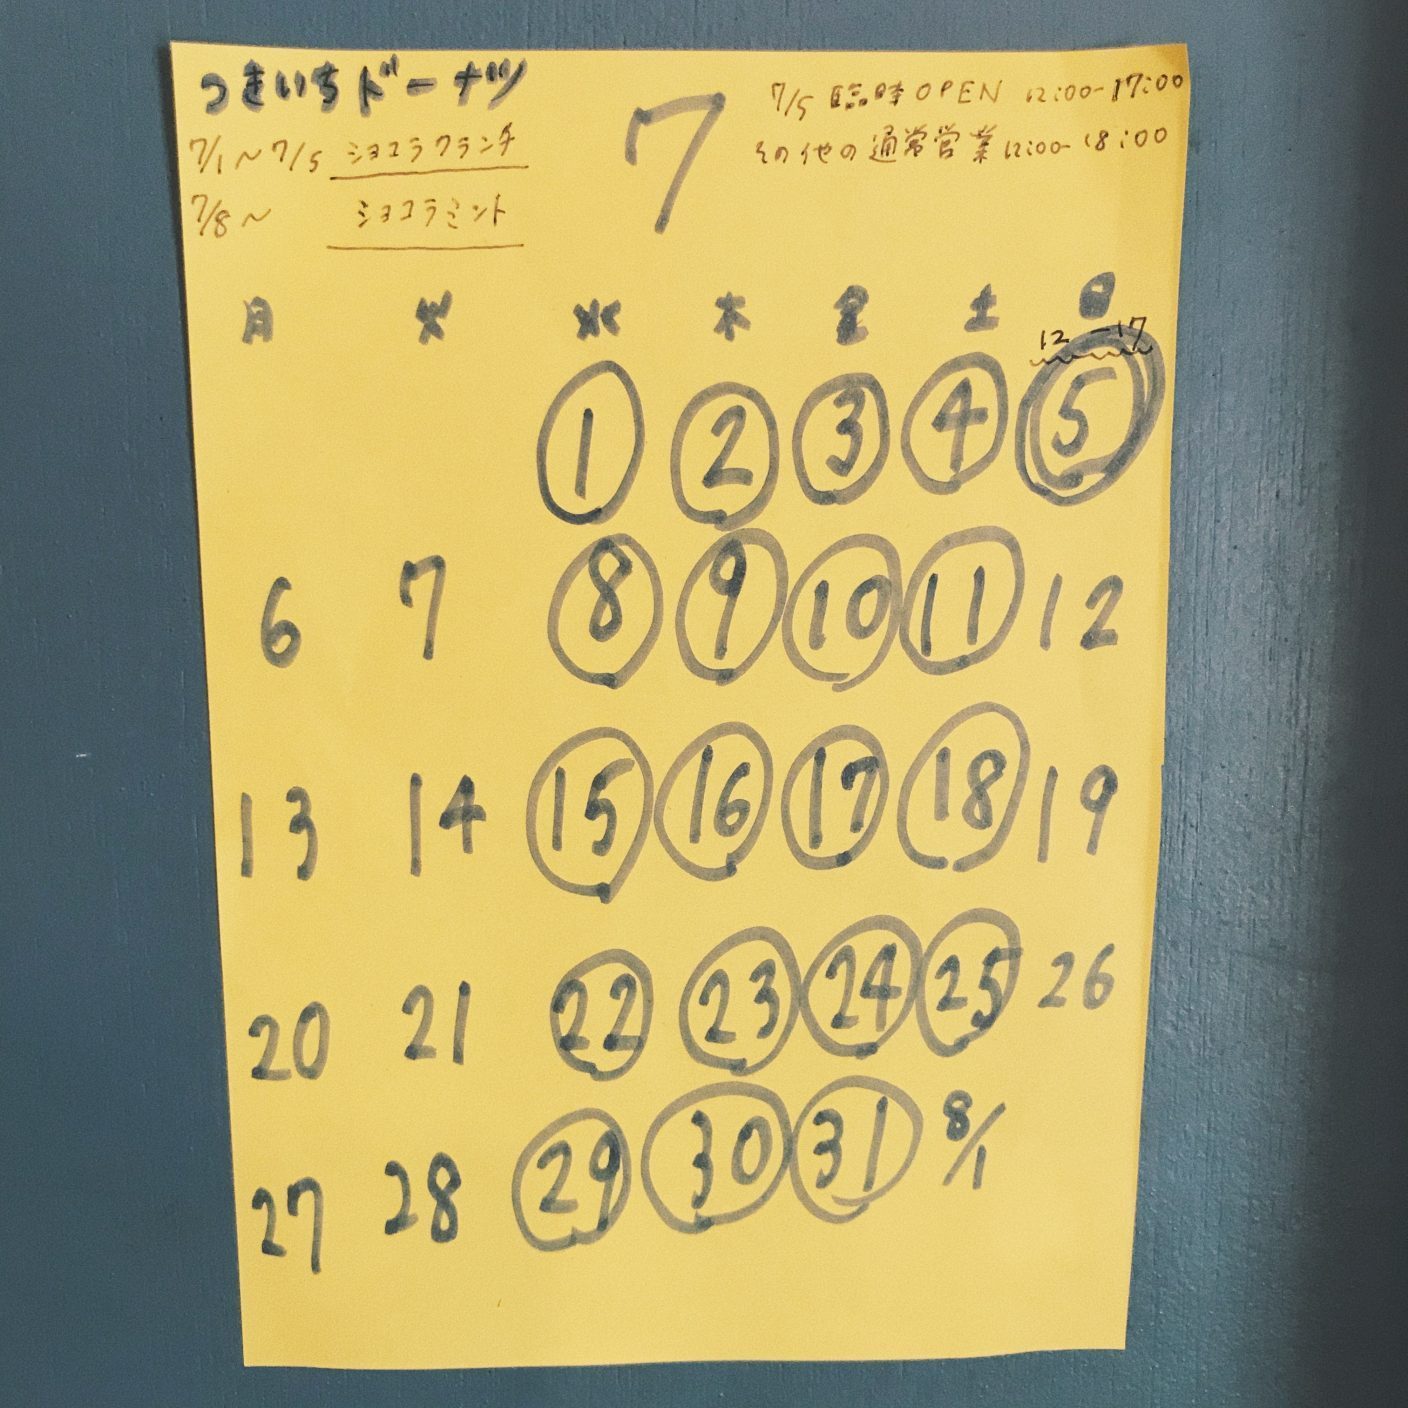 つきいちドーナツ
7/1～7/5 ショコラクランチ
7/8～ ショコラミント
7
7/5 臨時OPEN 12:00-17:00
その他の通常営業 12:00-18:00
月 火 水 木 金 土 日
12-17
1 2 3 4 5
6 7 8 9 10 11 12
13 14 15 16 17 18 19
20 21 22 23 24 25 26
27 28 29 30 31 8/1